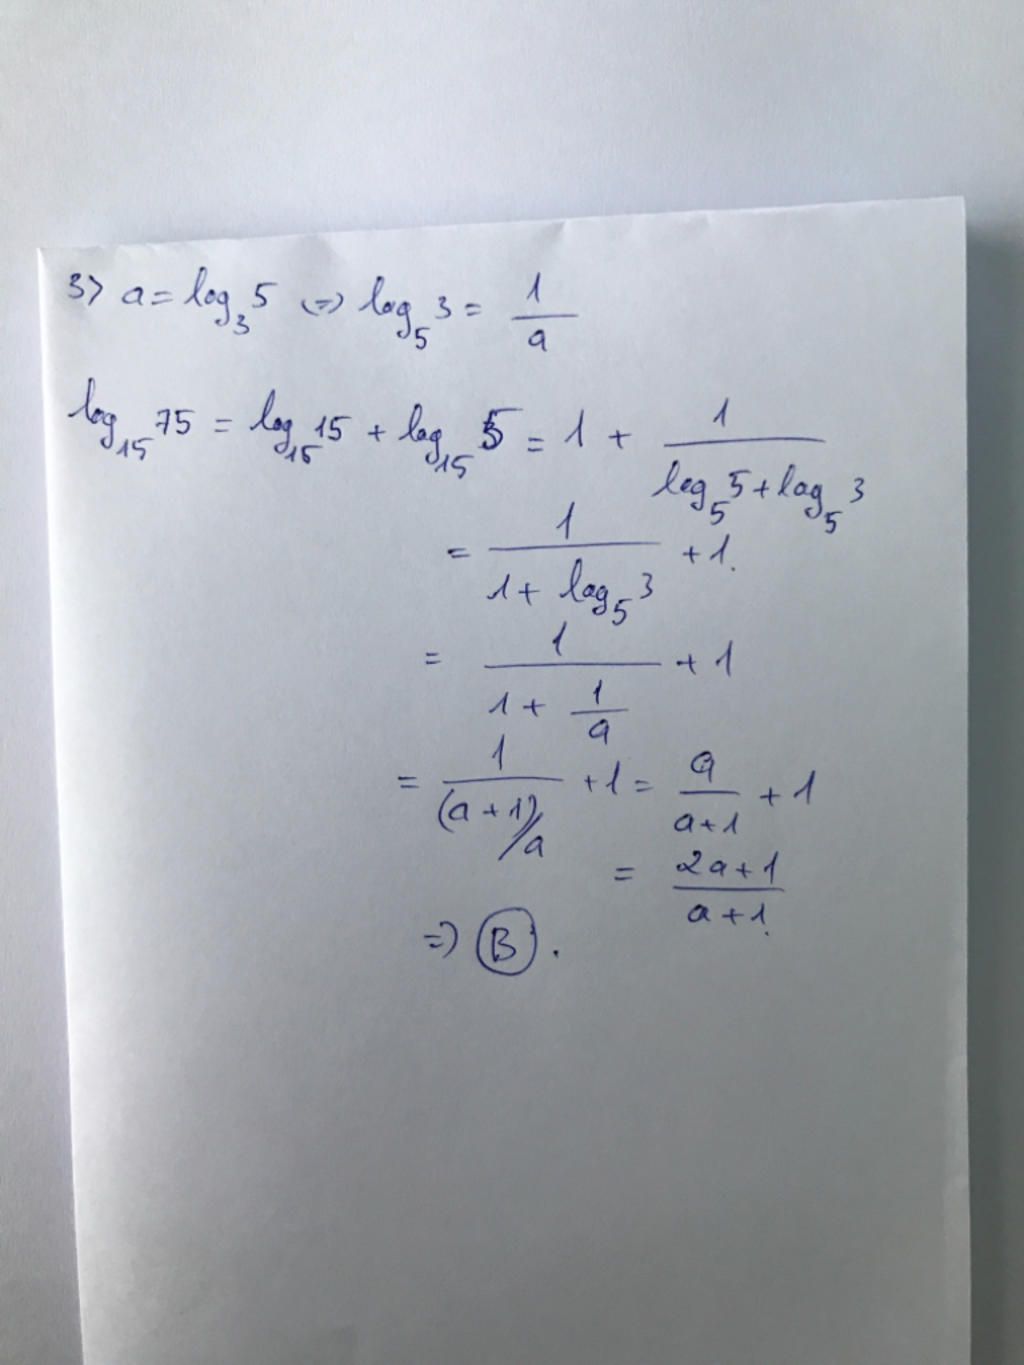 3> a = log₃5 (=) log₅3 = 1/a
log₁₅75 = log₁₅15 + log₁₅5 = 1 + 1/(log₅5 + log₅3)
= 1/(1 + log₅3) + 1.
= 1/(1 + 1/a) + 1
= 1/((a+1)/a) + 1 = a/(a+1) + 1
= (2a+1)/(a+1).
=) B.